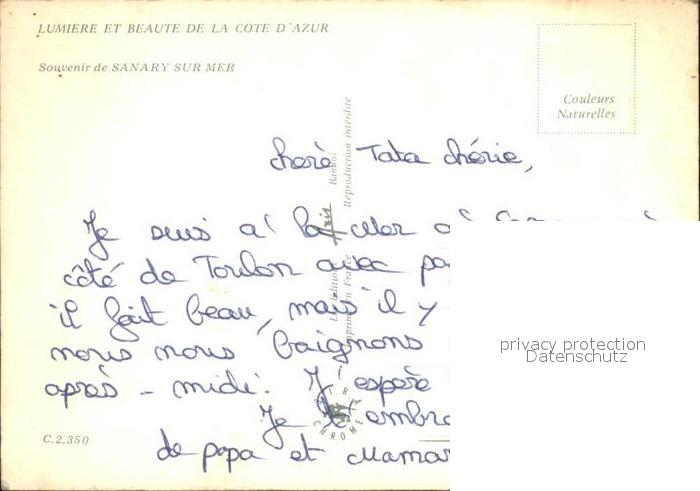 LUMIERE ET BEAUTE DE LA COTE D'AZUR
Souvenir de SANARY SUR MER
Couleurs
Naturelles
Reproduction interdite
chère Tata chérie,
Je suis a' la Mer
côté de Toulon avec
il fait beau, mais il y
nous nous baignons
après-midi. J'espère
Je t'
de papa et
C.2.350
privacy protection
Datenschutz